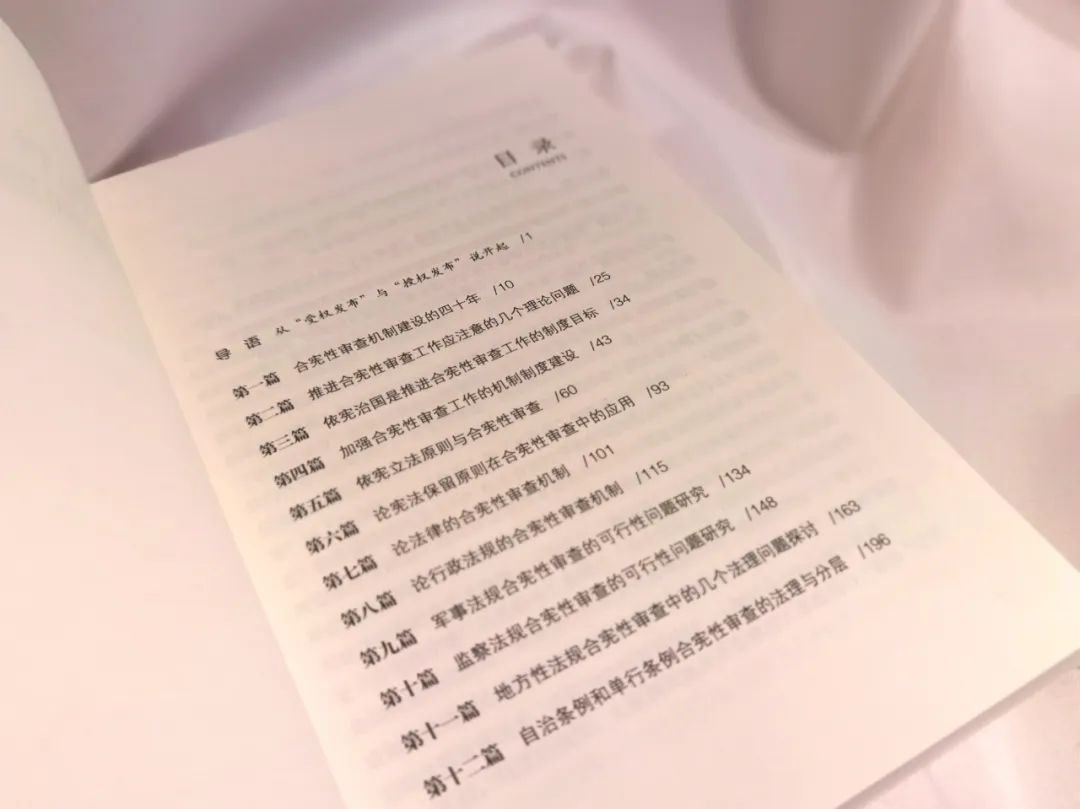 目 录
CONTENTS
导 语 从“受权发布”与“授权发布”说开起 /1
第一篇 合宪性审查机制建设的四十年 /10
第二篇 推进合宪性审查工作应注意的几个理论问题 /25
第三篇 依宪治国是推进合宪性审查工作的制度目标 /34
第四篇 加强合宪性审查工作的机制制度建设 /43
第五篇 依宪立法原则与合宪性审查 /60
第六篇 论宪法保留原则在合宪性审查中的应用 /93
第七篇 论法律的合宪性审查机制 /101
第八篇 论行政法规的合宪性审查机制 /115
第九篇 军事法规合宪性审查的可行性问题研究 /134
第十篇 监察法规合宪性审查的可行性问题研究 /148
第十一篇 地方性法规合宪性审查中的几个法理问题探讨 /163
第十二篇 自治条例和单行条例合宪性审查的法理与分层 /196